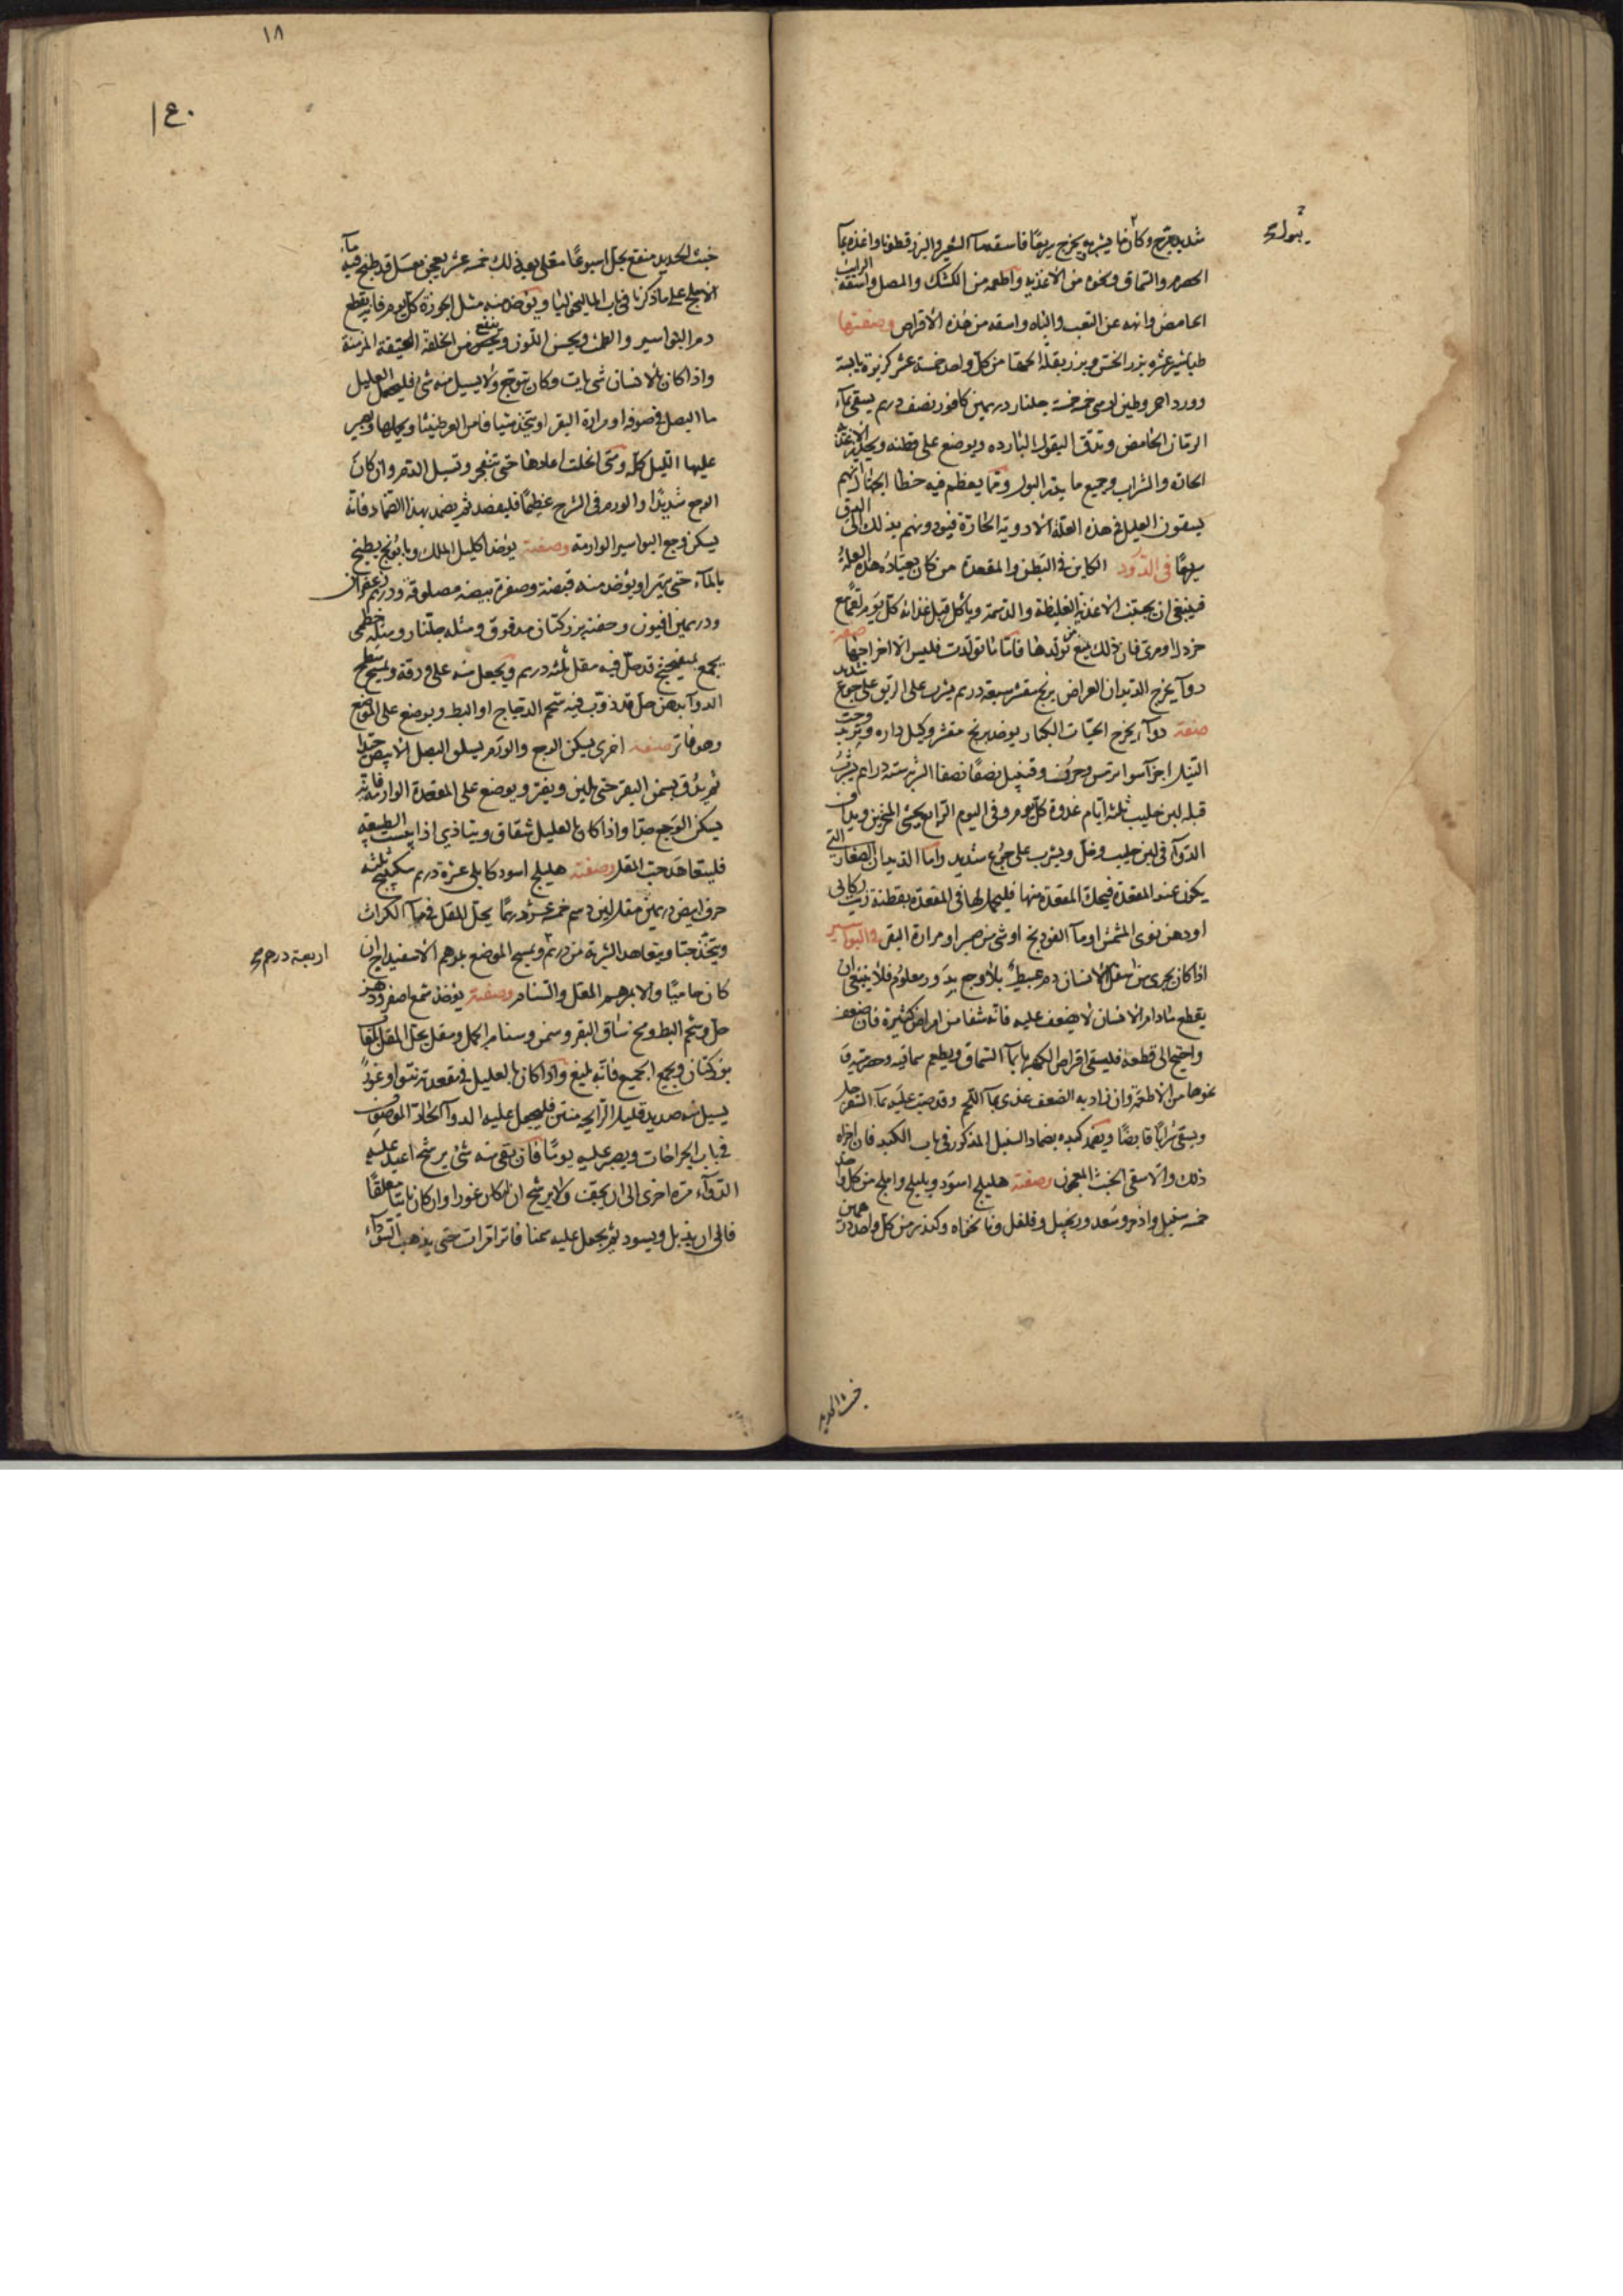 شديد بقرح وكان ما يشربه يخرج سريعًا فاسقه مآ الشعير والبزرقطونا واغذه بمآ
يبوله صح
الحصرم والسماق ونحوه من الاغذيه واطعمه من الكشك والمصل واسقه الرايب
الحامض وانهه عن التعب والباه واسقه من هذه الاقراص وصفتها
طباشير عشره بزر الخس وبزر بقلة الحمقا من كل واحد خمسة عشر كزبرة يابسة
وورد احمر وطين ارمنى خمسه خمسة جلنار درهمين كافور نصف درهم يسقى بمآء
الرمان الحامض وتدق البقول البارده ويوضع على قطنه ويحذر الاغذية
الحاره والشراب وجميع ما يدر البول ومما يعظم فيه خطا الجهال انهم
يسقون العليل فى هذه العلة الادوية الحارة فيودونهم بذلك الى الدق
سريعًا فى الدود الكاين فى البطن والمقعدة من كان يعتاده هذه العلة
فينبغى ان يجتنب الاغذية الغليظة والدسمة وياكل قبل غذائه كل يوم لعقا مع
خردل او مرى فان ذلك يمنع من تولدها فاما ما تولدت فليس الا اخراجها صفة
دوآ يخرج الديدان العراض برنج مقشر سبعة دراهم يشرب على الريق على جوع شديد
صفة دوآء يخرج الحيات الكبار يوخذ برنج مقشر وكيل داره وتربد وحب
النيل اجزآ سوا ترمس وحرف وقنبيل نصفا نصفا الشربة ستة دراهم يشرب
قبله لبن حليب ثلثة ايام غدوة كل يوم وفى اليوم الرابع يحشى المنخرين ويداف
الدوآ فى لبن حليب وخل ويشرب على جوع شديد واما الديدان الصغار التى
يكون عند المقعدة فيحك المقعدة منها فليحمل لها فى المقعدة بقطنة زيت ركابى
او دهن نوى المشمش او مآ الفودنج او شى من صبر او مرارة البقر فى البواسير
اذا كان يجرى من اسفل الانسان دم عبيط بلا وجع بدور معلوم فلا ينبغى ان
يقطع مادام الانسان لا يضعف عليه فانه شفا من امراض كثيرة فان ضعف
واحتيج الى قطعه فليسقى اقراص الكهربا بمآ السماق ويطعم سماقيه وحصرميه و
نحوها من الاطعمة وان زاد به الضعف غذى بمآ اللحم وقد صب عليه مآ السفرجل
ويسقى شرابًا قابضًا ويضمد كبده بضماد السنبل المذكور فى باب الكبد فان اجزاه
ذلك والا سقى الخبث المعجون وصفته هليلج اسود وبليلج واملج من كل واحد
خمسه سنبل واذخر وسعد وزنجبيل وفلفل ونانخواه وكندر من كل واحد درهمين
خبث الحديد
١٨
١٤٠
خبث الحديد منقع بخل اسبوعًا مقلى بعد ذلك خمسة عشر يعجن بعسل قد طبخ فيه مآء
الاملج على ما ذكرنا فى باب الماليخوليا ويوخذ منه مثل الجوزة كل يوم فانه يقطع
دم البواسير والطمث ويحسن اللون وينفع من الخلفة العتيقة المزمنة
واذا كان بالانسان شى نابت وكان يتوجع ولا يسيل منه شى فليحمل العليل
ما البصل فى صوفه او مرارة البقر او يتخذ شيافا من العرطنيثا ويحملها ويصبر
عليها الليل كله ومتى انحلت اعادها حتى تنفجر وتسيل الدم وان كان
الوجع شديدًا والورم فى الشرج عظيمًا فليفصد ثم يضمد بهذا الضماد فانه
يسكن وجع البواسير الوارمة وصفته يوخذ اكليل الملك وبابونج يطبخ
بالمآء حتى يتهرا ويوخذ منه قبضة وصفرة بيضه مصلوقه ودرهم زعفران
ودرهمين افيون وحفنه بزر كتان مدقوق ومثله جلنار ومثله خطمى
يجمع بميفختج قد حل فيه مقل ثلثة دراهم ويجعل منه على خرقة ويمسح سطح
الدوآ بدهن حل قد ذوب فيه شحم الدجاج او البط ويوضع على الموضع
وهو فاتر صفة اخرى يسكن الوجع والورم يسلق البصل الابيض جيدا
ثم يدق بسمن البقر حتى يلين ويفتر ويوضع على المقعدة الوارمة فانه
يسكن الوجع جدا واذا كان بالعليل شقاق ويتاذى اذا يبست الطبيعة
فليتعاهد حب المقل وصفته هليلج اسود كابلى عشرة دراهم سكبينج ثلثة
حرف ابيض درهمين مقل لين دسم خمسة عشر درهمًا يحل المقل فى مآ الكراث
ويتخذ حبا ويتعاهد الشربة من درهم ويمسح الموضع بمرهم الاسفيداج ان
اربعة دراهم صح
كان حاميًا والا بمرهم المقل والسنام وصفته يوخذ شمع اصفر ودهن
حل وشحم البط ومخ ساق البقر وسمن وسنام الجمل ومقل يحل المقل بلعاب
بزر كتان ويجمع الجميع فانه بليغ واذا كان بالعليل فى مقعدته نتو او غور
يسيل منه صديد قليل الرايحة منتن فليجعل عليه الدوآ الحاد الموصوف
فى باب الجراحات ويصبر عليه يومًا فان بقى منه شئ يرشح اعيد عليه
الدوآء مرة اخرى الى ان يجف ولا يرشح ان كان غورا وان كان ناتيا معلقًا
فالى ان يذبل ويسود ثم يجعل عليه سمنا فاترا مرات حتى يذهب السوداء